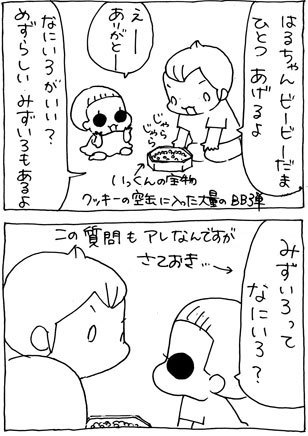 はるちゃん ビービーだま
ひとつ あげるよ
えー
ありがとー
じゃら
じゃら
なにいろがいい？
めずらしい みずいろもあるよ
いっくんの宝物
クッキーの空缶に入った大量のBB弾
この質問も アレなんですが
さておき…
みずいろって
なにいろ？